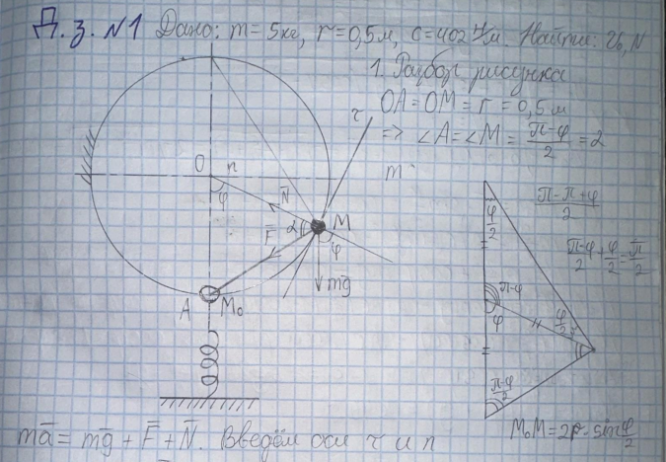 Д.з. №1 Дано: m=5кг, r=0,5м, c=402 Н/м. Найти: v, N
1. Разбор рисунка
OA=OM=r=0,5м
=> ∠A=∠M= (π-φ)/2 =2
τ
m
O n
φ
N̄
M
2
F̄
φ
mḡ
A M₀
φ/2
(π-π+φ)/2
(π-φ)/2+φ/2=π/2
π-φ
φ
φ/2
(π-φ)/2
M₀M=2r·sin φ/2
mā = mḡ + F̄ + N̄. Введём оси τ и n